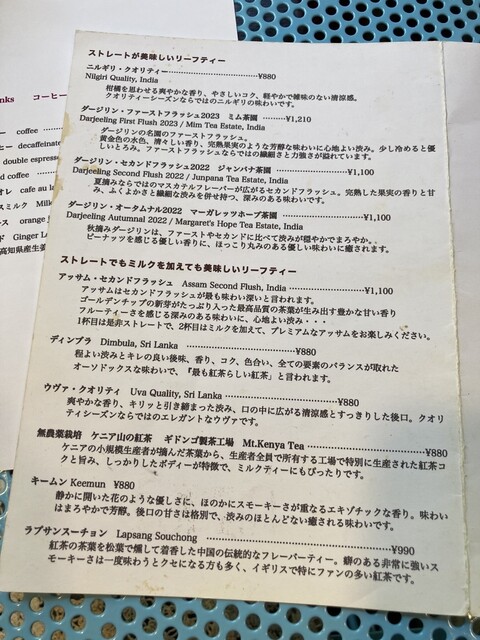 ストレートが美味しいリーフティー
ニルギリ・クオリティー ¥880
Nilgiri Quality, India
柑橘を思わせる爽やかな香り、やさしいコク、軽やかで雑味のない清涼感。
クオリティーシーズンならではのニルギリの味わいです。
ダージリン・ファーストフラッシュ2023 ミム茶園 ¥1,210
Darjeeling First Flush 2023 / Mim Tea Estate, India
ダージリンの名園のファーストフラッシュ。
黄金色の水色、清々しい香り、完熟果実のような芳醇な味わいに心地よい渋み。少し冷めると優
しいとろみ。ファーストフラッシュならではの繊細さと力強さが溢れています。
ダージリン・セカンドフラッシュ2022 ジャンパナ茶園 ¥1,100
Darjeeling Second Flush 2022 / Junpana Tea Estate, India
夏摘みならではのマスカテルフレーバーが広がるセカンドフラッシュ。完熟した果実の香りと甘
み、ふくよかさと繊細な渋みを併せ持つ、深みのある味わいです。
ダージリン・オータムナル2022 マーガレッツホープ茶園 ¥1,100
Darjeeling Autumnal 2022 / Margaret's Hope Tea Estate, India
秋摘みダージリンは、ファーストやセカンドに比べて渋みが穏やかでまろやか。
ピーナッツを感じる優しい香りに、ほっこり丸みのある優しい味わいに癒されます。
ストレートでもミルクを加えても美味しいリーフティー
アッサム・セカンドフラッシュ Assam Second Flush, India ¥1,100
アッサムはセカンドフラッシュが最も味わい深いと言われます。
ゴールデンチップの新芽がたっぷり入った最高品質の茶葉が生み出す豊かな甘い香り
フルーティーさを感じる深みのある味わいに、心地よい渋み・・・
1杯目は是非ストレートで、2杯目はミルクを加えて、プレミアムなアッサムをお楽しみください。
ディンブラ Dimbula, Sri Lanka ¥880
程よい渋みとキレの良い後味、香り、コク、色合い、全ての要素のバランスが取れた
オーソドックスな味わいで、『最も紅茶らしい紅茶』と言われます。
ウヴァ・クオリティ Uva Quality, Sri Lanka ¥880
爽やかな香り、キリッと引き締まった渋み、口の中に広がる清涼感とすっきりした後口。クオリ
ティシーズンならではのエレガントなウヴァです。
無農薬栽培 ケニア山の紅茶 ギドンゴ製茶工場 Mt.Kenya Tea ¥880
ケニアの小規模生産者が摘んだ茶葉から、生産者全員で所有する工場で特別に生産された紅茶コ
クと旨み、しっかりしたボディーが特徴で、ミルクティーにもぴったりです。
キームン Keemun ¥880
静かに開いた花のような優しさに、ほのかにスモーキーさが重なるエキゾチックな香り。味わい
はまろやかで芳醇。後口の甘さは格別で、渋みのほとんどない癒される味わいです。
ラプサンスーチョン Lapsang Souchong ¥990
紅茶の茶葉を松葉で燻して着香した中国の伝統的なフレーバーティー。癖のある非常に強いス
モーキーさは一度味わうとクセになる方も多く、イギリスで特にファンの多い紅茶です。
nks コーヒー
coffee
decaffeinate
double espresso
d coffee
オレ cafe au la
スミルク Milk
ース orange
ド Ginger L
高知県産生姜